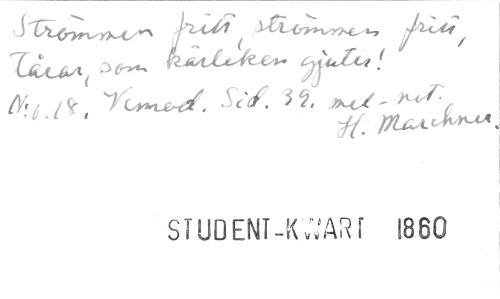 Strömmen fritt, strömmen fritt,
Tårar, som kärleken gjuter!
N:o 18. Vemod. Sid. 39. mel-not.
H. Marchner.
STUDENT-KWART 1860